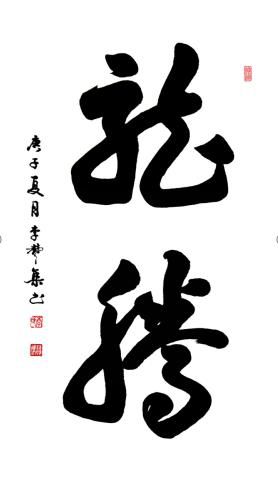 龍騰
庚子夏月李静集山